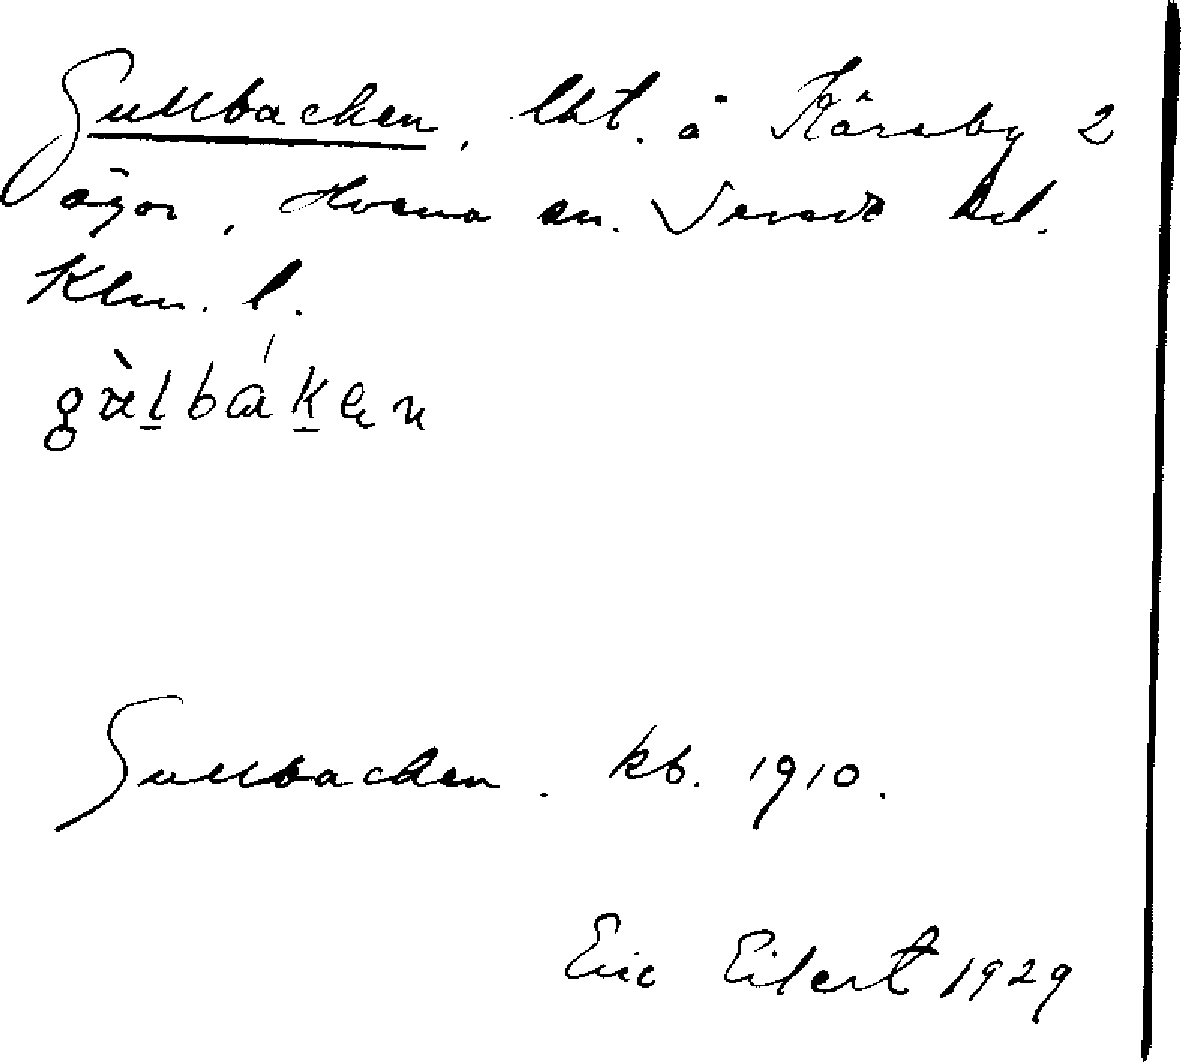 Gullbacken, lht. å 2
ägor, Hvena sn. Sevede hd.
Klm. l.
gùl̠bák̠ęn
Gullbacken. kb. 1910.
Eric Eilert 1929